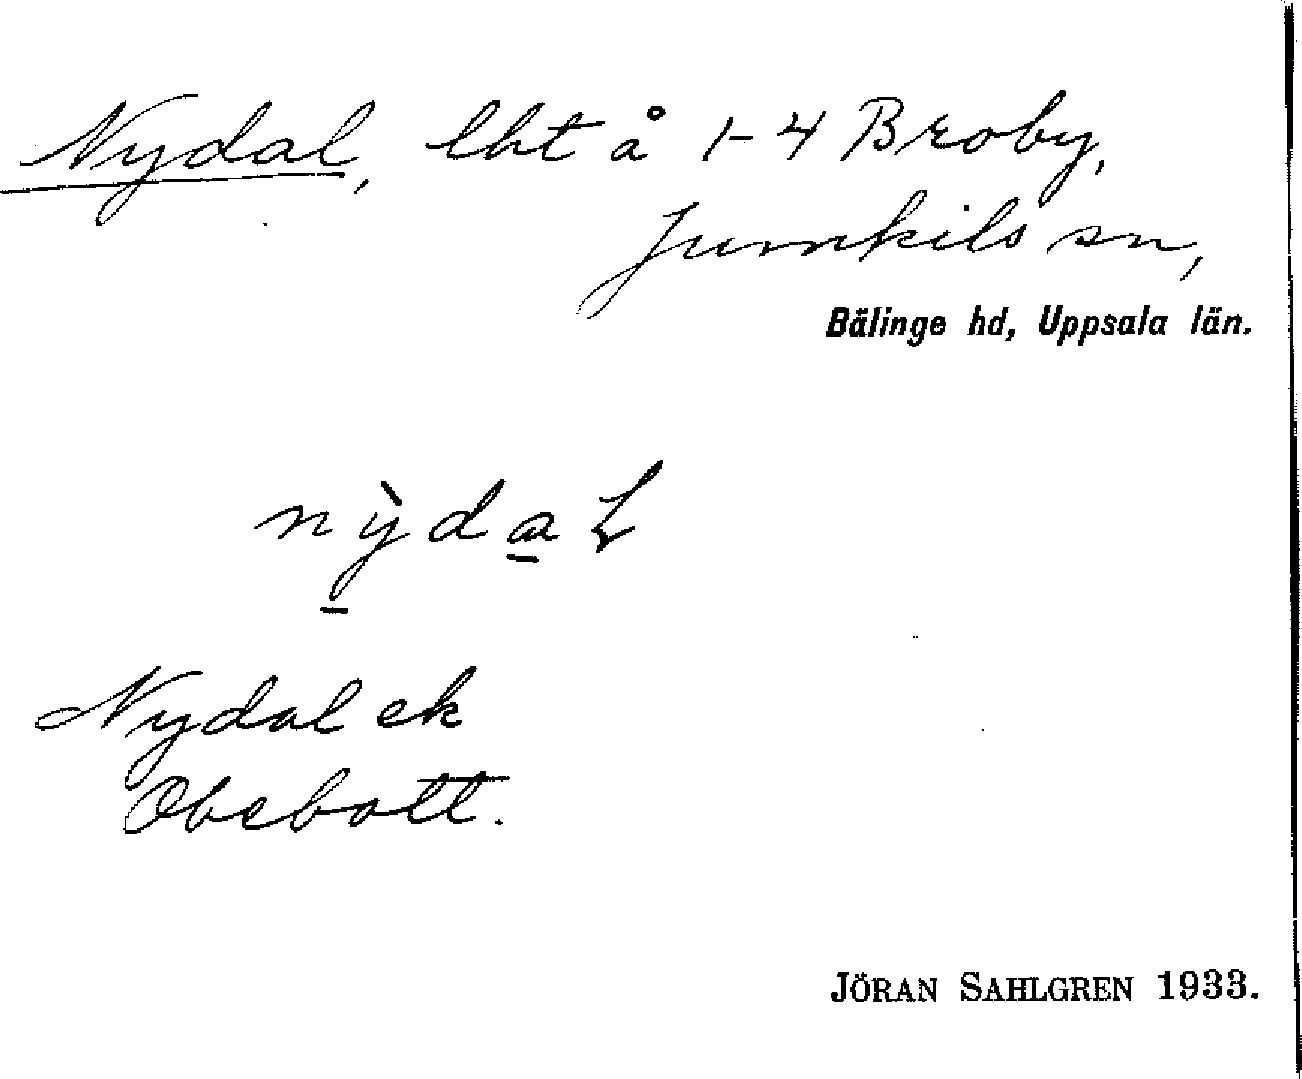 Nydal, lht å 1-4 Broby,
Jumkils sn,
Bälinge hd, Uppsala län.
nỳdaL
Nydal ek
Obebott.
JÖRAN SAHLGREN 1933.